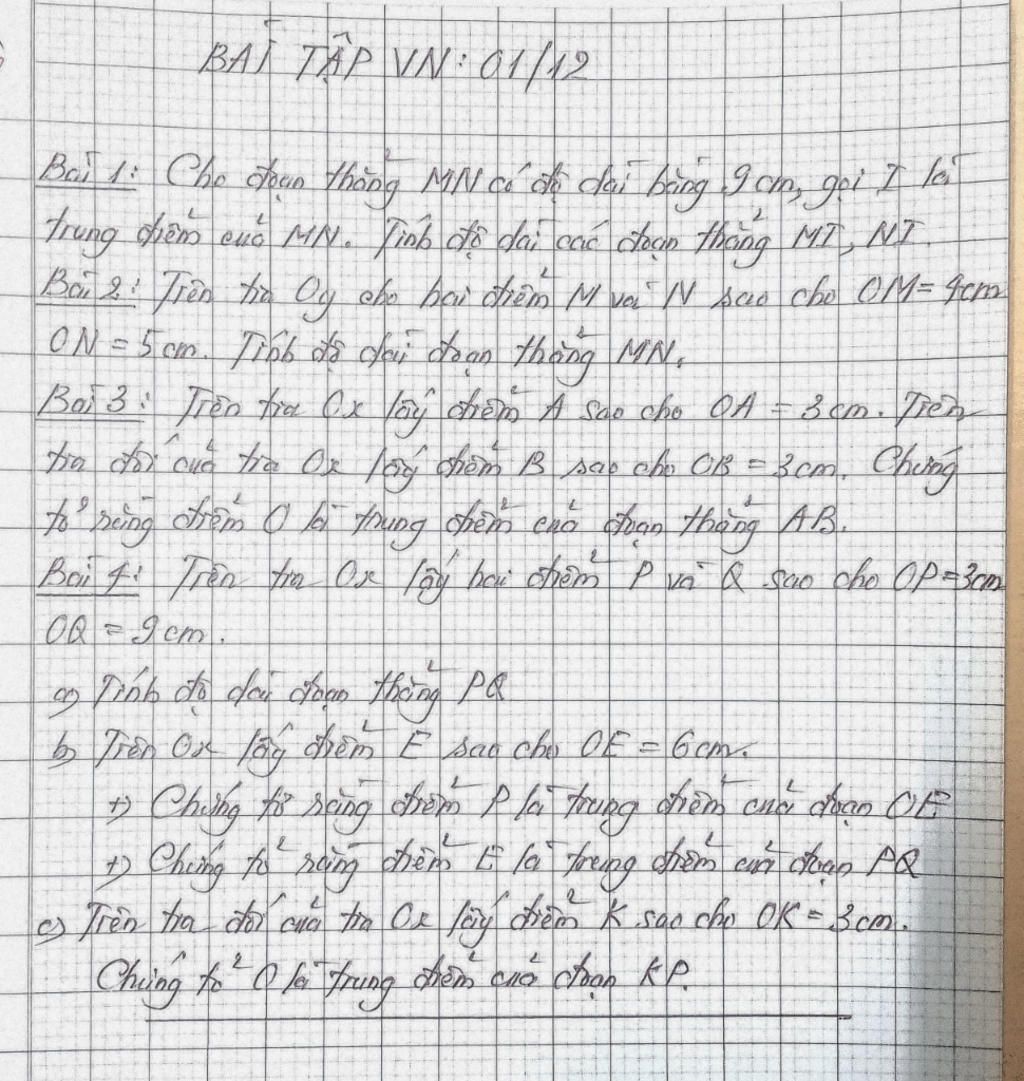 BÀI TẬP VN: 01/12
Bài 1: Cho đoạn thẳng MN có độ dài bằng 9 cm, gọi I là
trung điểm của MN. Tính độ dài các đoạn thẳng MI, NI.
Bài 2: Trên tia Oy cho hai điểm M và N sao cho OM = 4cm
ON = 5 cm. Tính độ dài đoạn thẳng MN.
Bài 3: Trên tia Ox lấy điểm A sao cho OA = 3 cm. Trên
tia đối của tia Ox lấy điểm B sao cho OB = 3 cm. Chứng
tỏ rằng điểm O là trung điểm của đoạn thẳng AB.
Bài 4: Trên tia Ox lấy hai điểm P và Q sao cho OP = 3cm
OQ = 9 cm.
a) Tính độ dài đoạn thẳng PQ
b) Trên Ox lấy điểm E sao cho OE = 6 cm.
+) Chứng tỏ rằng điểm P là trung điểm của đoạn OE
+) Chứng tỏ rằng điểm E là trung điểm của đoạn PQ
c) Trên tia đối của tia Ox lấy điểm K sao cho OK = 3 cm.
Chứng tỏ O là trung điểm của đoạn KP.